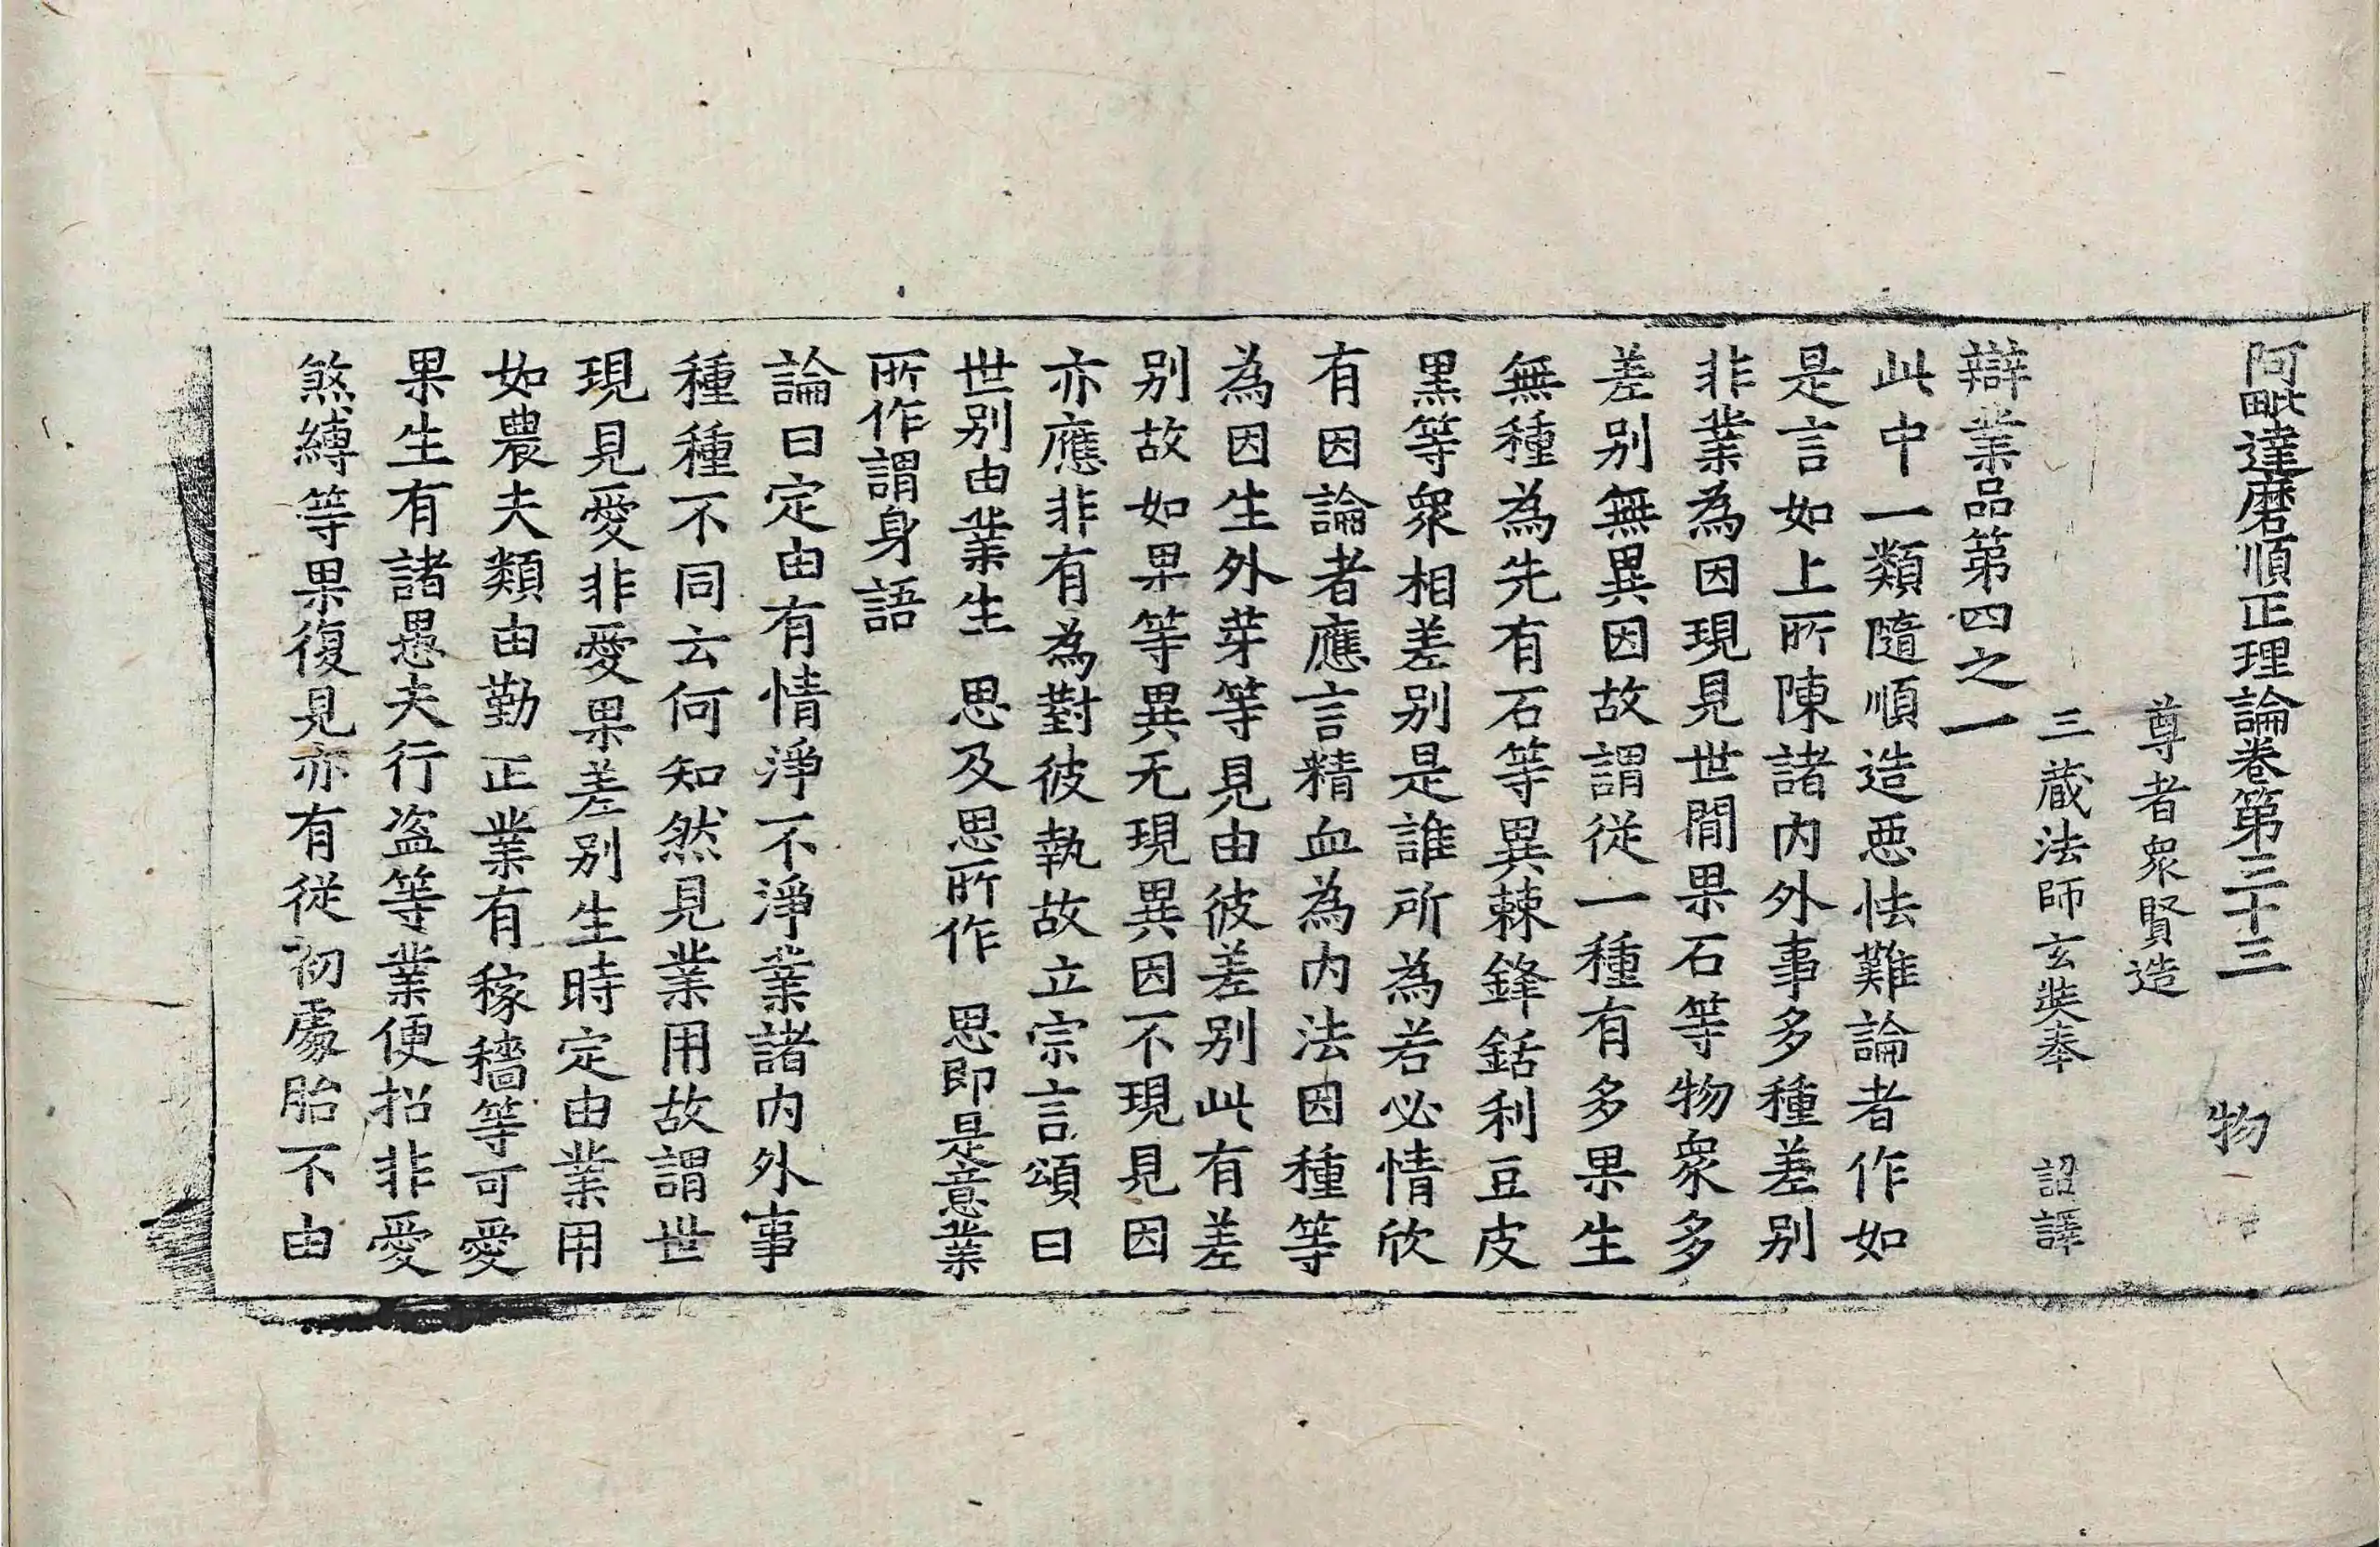 阿毗達磨順正理論卷第三十三 物
尊者衆賢造
三藏法師玄奘奉 詔譯
辯業品第四之一
此中一類隨順造惡怯難論者作如
是言如上所陳諸内外事多種差别
非業為因現見世閒果石等物衆多
差别無異因故謂從一種有多果生
無種為先有石等異棘鋒銛利豆皮
黑等衆相差别是誰所為若必情欣
有因論者應言精血為内法因種等
為因生外芽等見由彼差别此有差
别故如果等異无現異因不現見因
亦應非有為對彼執故立宗言頌曰
世别由業生 思及思所作 思即是意業
所作謂身語
論曰定由有情淨不淨業諸内外事
種種不同云何知然見業用故謂世
現見愛非愛果差别生時定由業用
如農夫類由勤正業有稼穡等可愛
果生有諸愚夫行盗等業便招非愛
煞縛等果復見亦有從初處胎不由